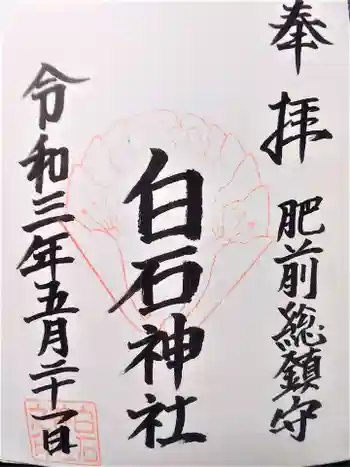 奉拝
肥前総鎮守
白石神社
令和三年五月二十一日